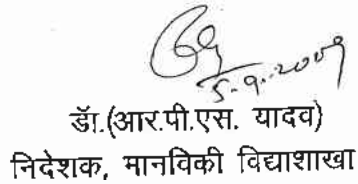 5.9.2009
डॉ.(आर.पी.एस. यादव)
निदेशक, मानविकी विद्याशाखा